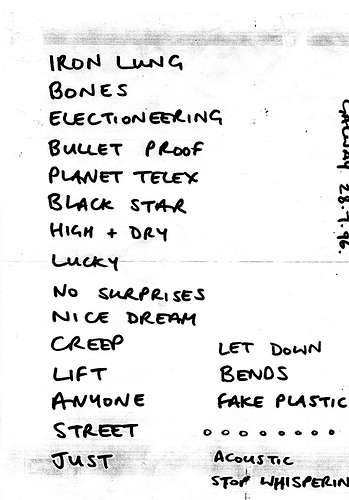 IRON LUNG
BONES
ELECTIONEERING
BULLET PROOF
PLANET TELEX
BLACK STAR
HIGH + DRY
LUCKY
NO SURPRISES
NICE DREAM
CREEP
LIFT
ANYONE
STREET
JUST
LET DOWN
BENDS
FAKE PLASTIC
ACOUSTIC
STOP WHISPERIN
GALWAY 28.7.96.